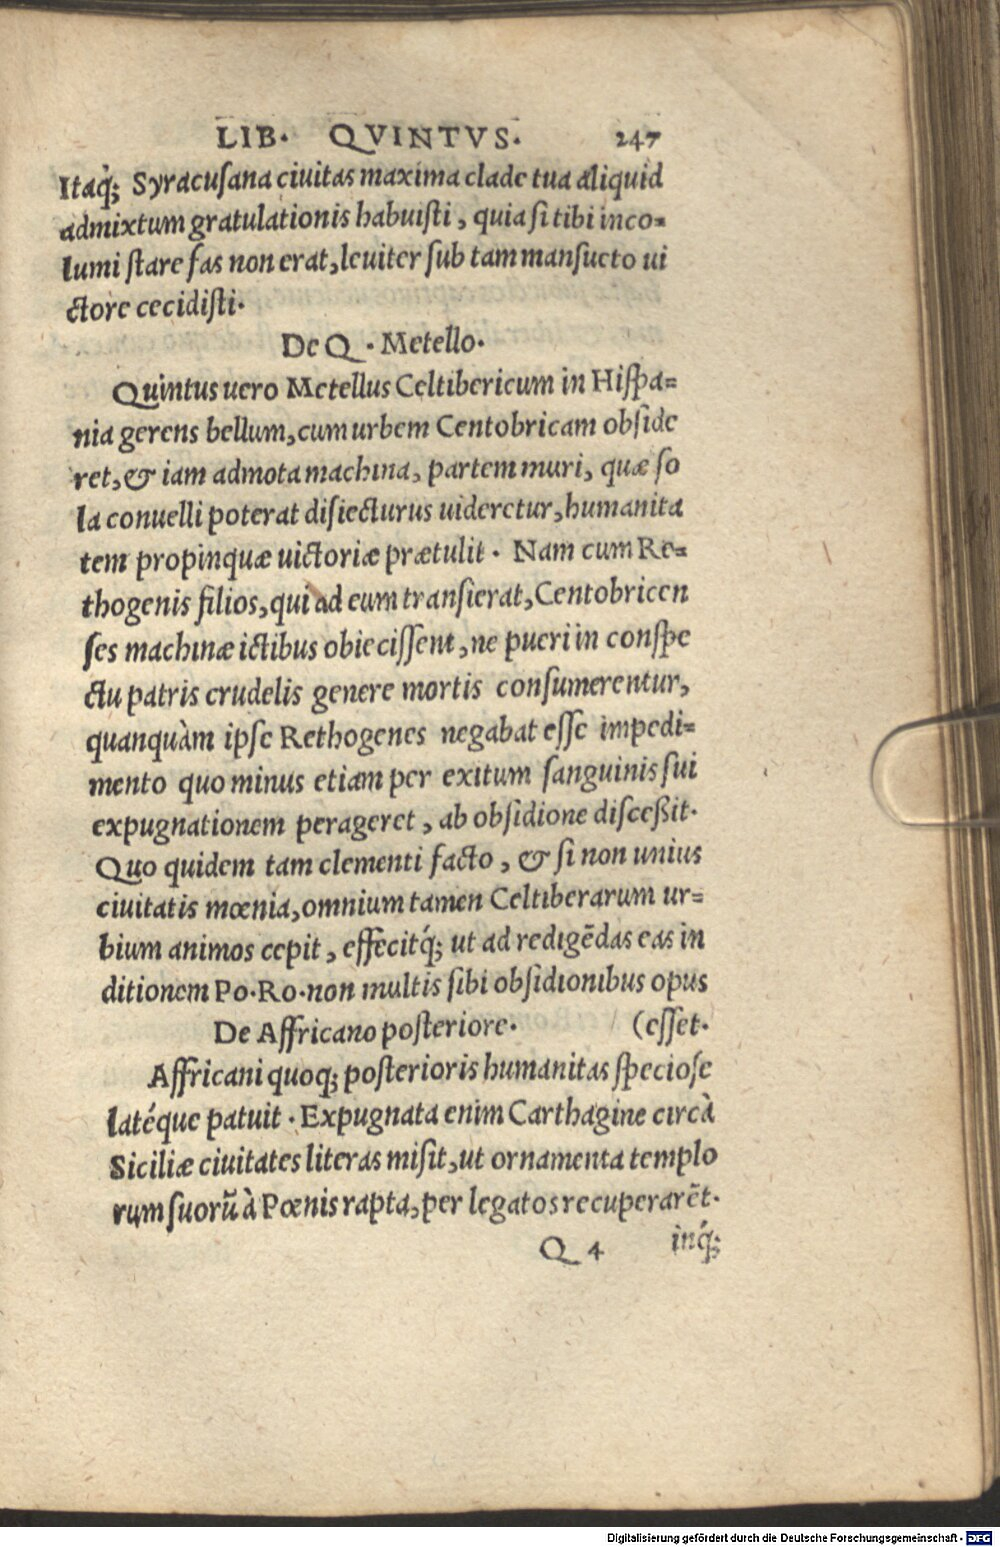 LIB. QVINTVS. 247
Itaq́; Syracuſana ciuitas maxima clade tua aliquid
admixtum gratulationis habuiſti, quia ſi tibi inco-
lumi ſtare fas non erat, leuiter ſub tam manſueto ui
ctore cecidiſti.
De Q. Metello.
Quintus uero Metellus Celtibericum in Hiſpa-
nia gerens bellum, cum urbem Centobricam obſide
ret, & iam admota machina, partem muri, quæ ſo
la conuelli poterat diſiecturus uideretur, humanita
tem propinquæ uictoriæ prætulit. Nam cum Re-
thogenis filios, qui ad eum tranſierat, Centobricen
ſes machinæ ictibus obieciſſent, ne pueri in conſpe
ctu patris crudelis genere mortis conſumerentur,
quanquàm ipſe Rethogenes negabat eſſe impedi-
mento quo minus etiam per exitum ſanguinis ſui
expugnationem perageret, ab obſidione diſceßit.
Quo quidem tam clementi facto, & ſi non unius
ciuitatis mœnia, omnium tamen Celtiberarum ur-
bium animos cepit, effecitq́; ut ad redigēdas eas in
ditionem Po. Ro. non multis ſibi obſidionibus opus
De Affricano poſteriore. (eſſet.
Affricani quoq; poſterioris humanitas ſpecioſe
latéque patuit. Expugnata enim Carthagine circà
Siciliæ ciuitates literas miſit, ut ornamenta templo
rum ſuorū à Pœnis rapta, per legatos recuperarēt.
Q 4 inq́;
Digitalisierung gefördert durch die Deutsche Forschungsgemeinschaft - DFG